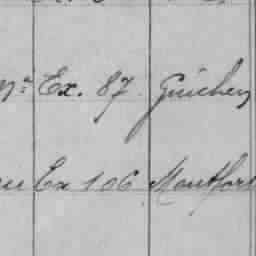 Ex. 87. Guichen
Ex 106 Montfort